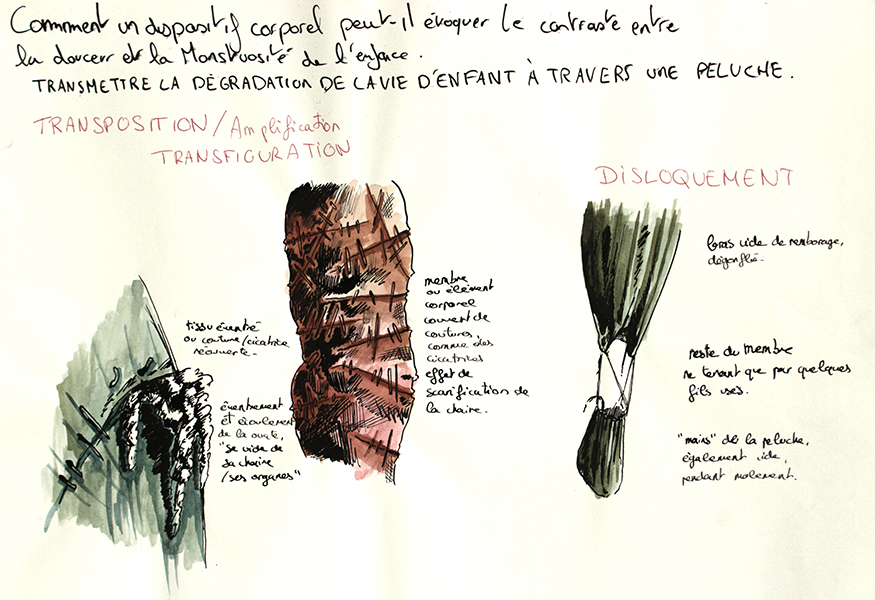 Comment un dispositif corporel peut-il évoquer le contraste entre
la douceur et la Monstruosité de l'enfance.
TRANSMETTRE LA DÉGRADATION DE LA VIE D'ENFANT À TRAVERS UNE PELUCHE.
TRANSPOSITION / Amplification
TRANSFIGURATION
tissu éventré
ou couture/cicatrice
réouverte.
éventrement
et écoulement
de la ouate,
"se vide de
sa chaire
/ses organes"
membre
ou élément
corporel
couvert de
coutures
comme des
cicatrices
effet de
scarification de
la chaire.
DISLOQUEMENT
bras vide de remborage,
dégonflé.
reste du membre
ne tenant que par quelques
fils usés.
"mains" de la peluche,
également vide,
pendant molement.